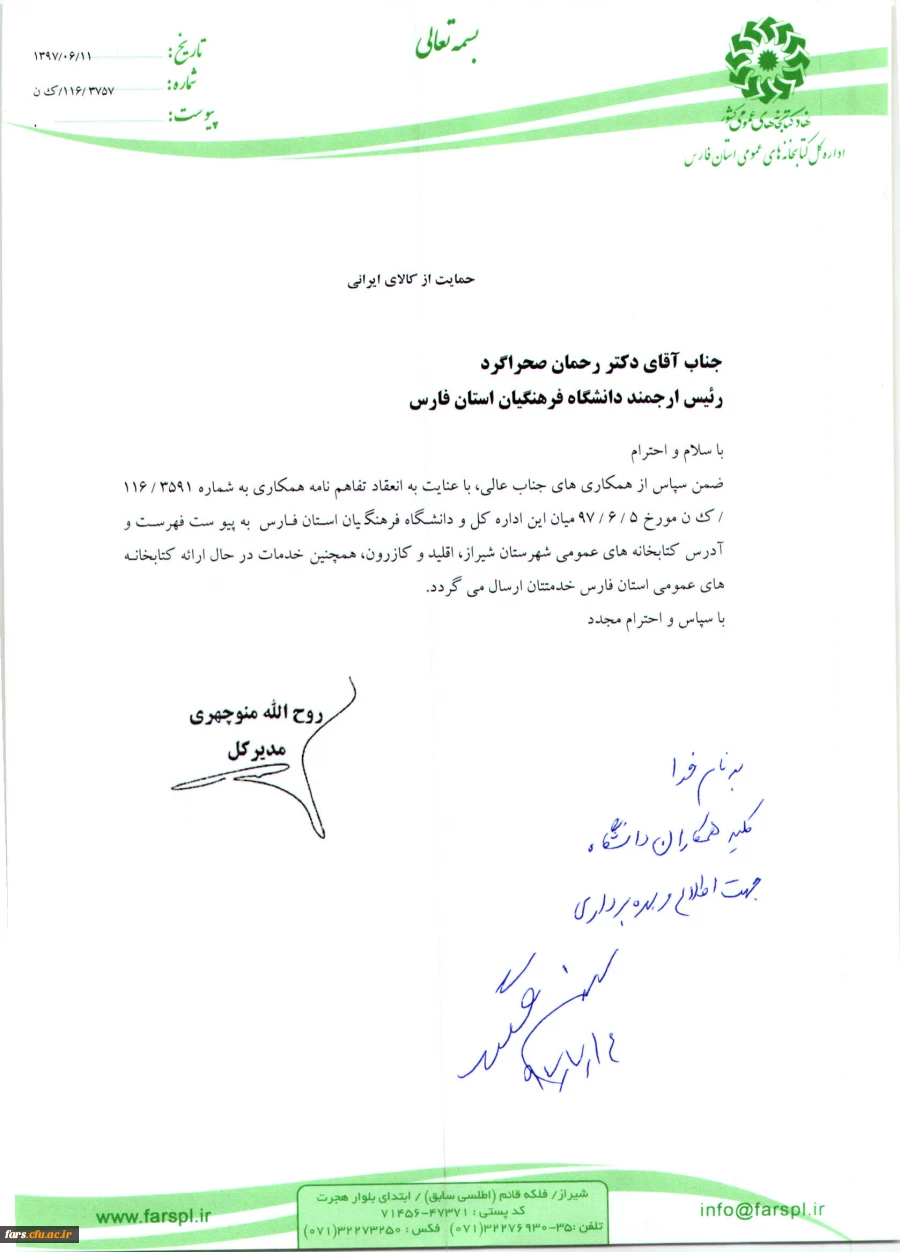 بسمه تعالی
تاریخ: ۱۳۹۷/۰۶/۱۱
شماره: ۱۱۶/۳۷۵۷/ک ن
پیوست: ۰
نهاد کتابخانه‌های عمومی کشور
اداره کل کتابخانه های عمومی استان فارس
حمایت از کالای ایرانی
جناب آقای دکتر رحمان صحراگرد
رئیس ارجمند دانشگاه فرهنگیان استان فارس
با سلام و احترام
ضمن سپاس از همکاری های جناب عالی، با عنایت به انعقاد تفاهم نامه همکاری به شماره ۱۱۶/۳۵۹۱
/ک ن مورخ ۹۷/۶/۵ میان این اداره کل و دانشگاه فرهنگیان استان فارس به پیو ست فهرست و
آدرس کتابخانه های عمومی شهرستان شیراز، اقلید و کازرون، همچنین خدمات در حال ارائه کتابخانه
های عمومی استان فارس خدمتتان ارسال می گردد.
با سپاس و احترام مجدد
روح الله منوچهری
مدیرکل
به نام خدا
کلیه همکاران دانشگاه
جهت اطلاع و بهره برداری
شیراز/ فلکه قائم (اطلسی سابق) / ابتدای بلوار هجرت
کد پستی : ۴۷۳۷۱-۷۱۴۵۶
تلفن :۳۵-۳۲۲۷۶۹۳۰(۰۷۱) فکس : ۳۲۲۷۳۲۵۰(۰۷۱)
www.farspl.ir
info@farspl.ir
fars.cfu.ac.ir